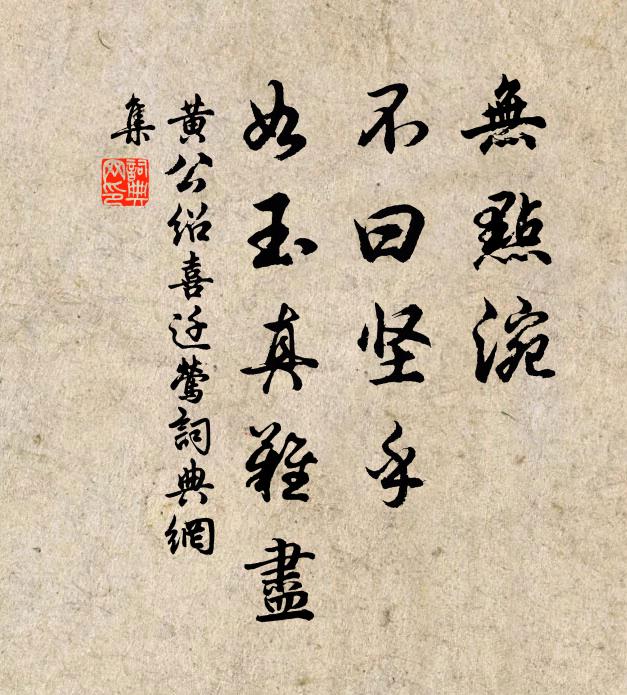 無點涴
不曰坚乎
如玉真難盡
黄公绍喜迁鶯詞典網
集
詞典網印